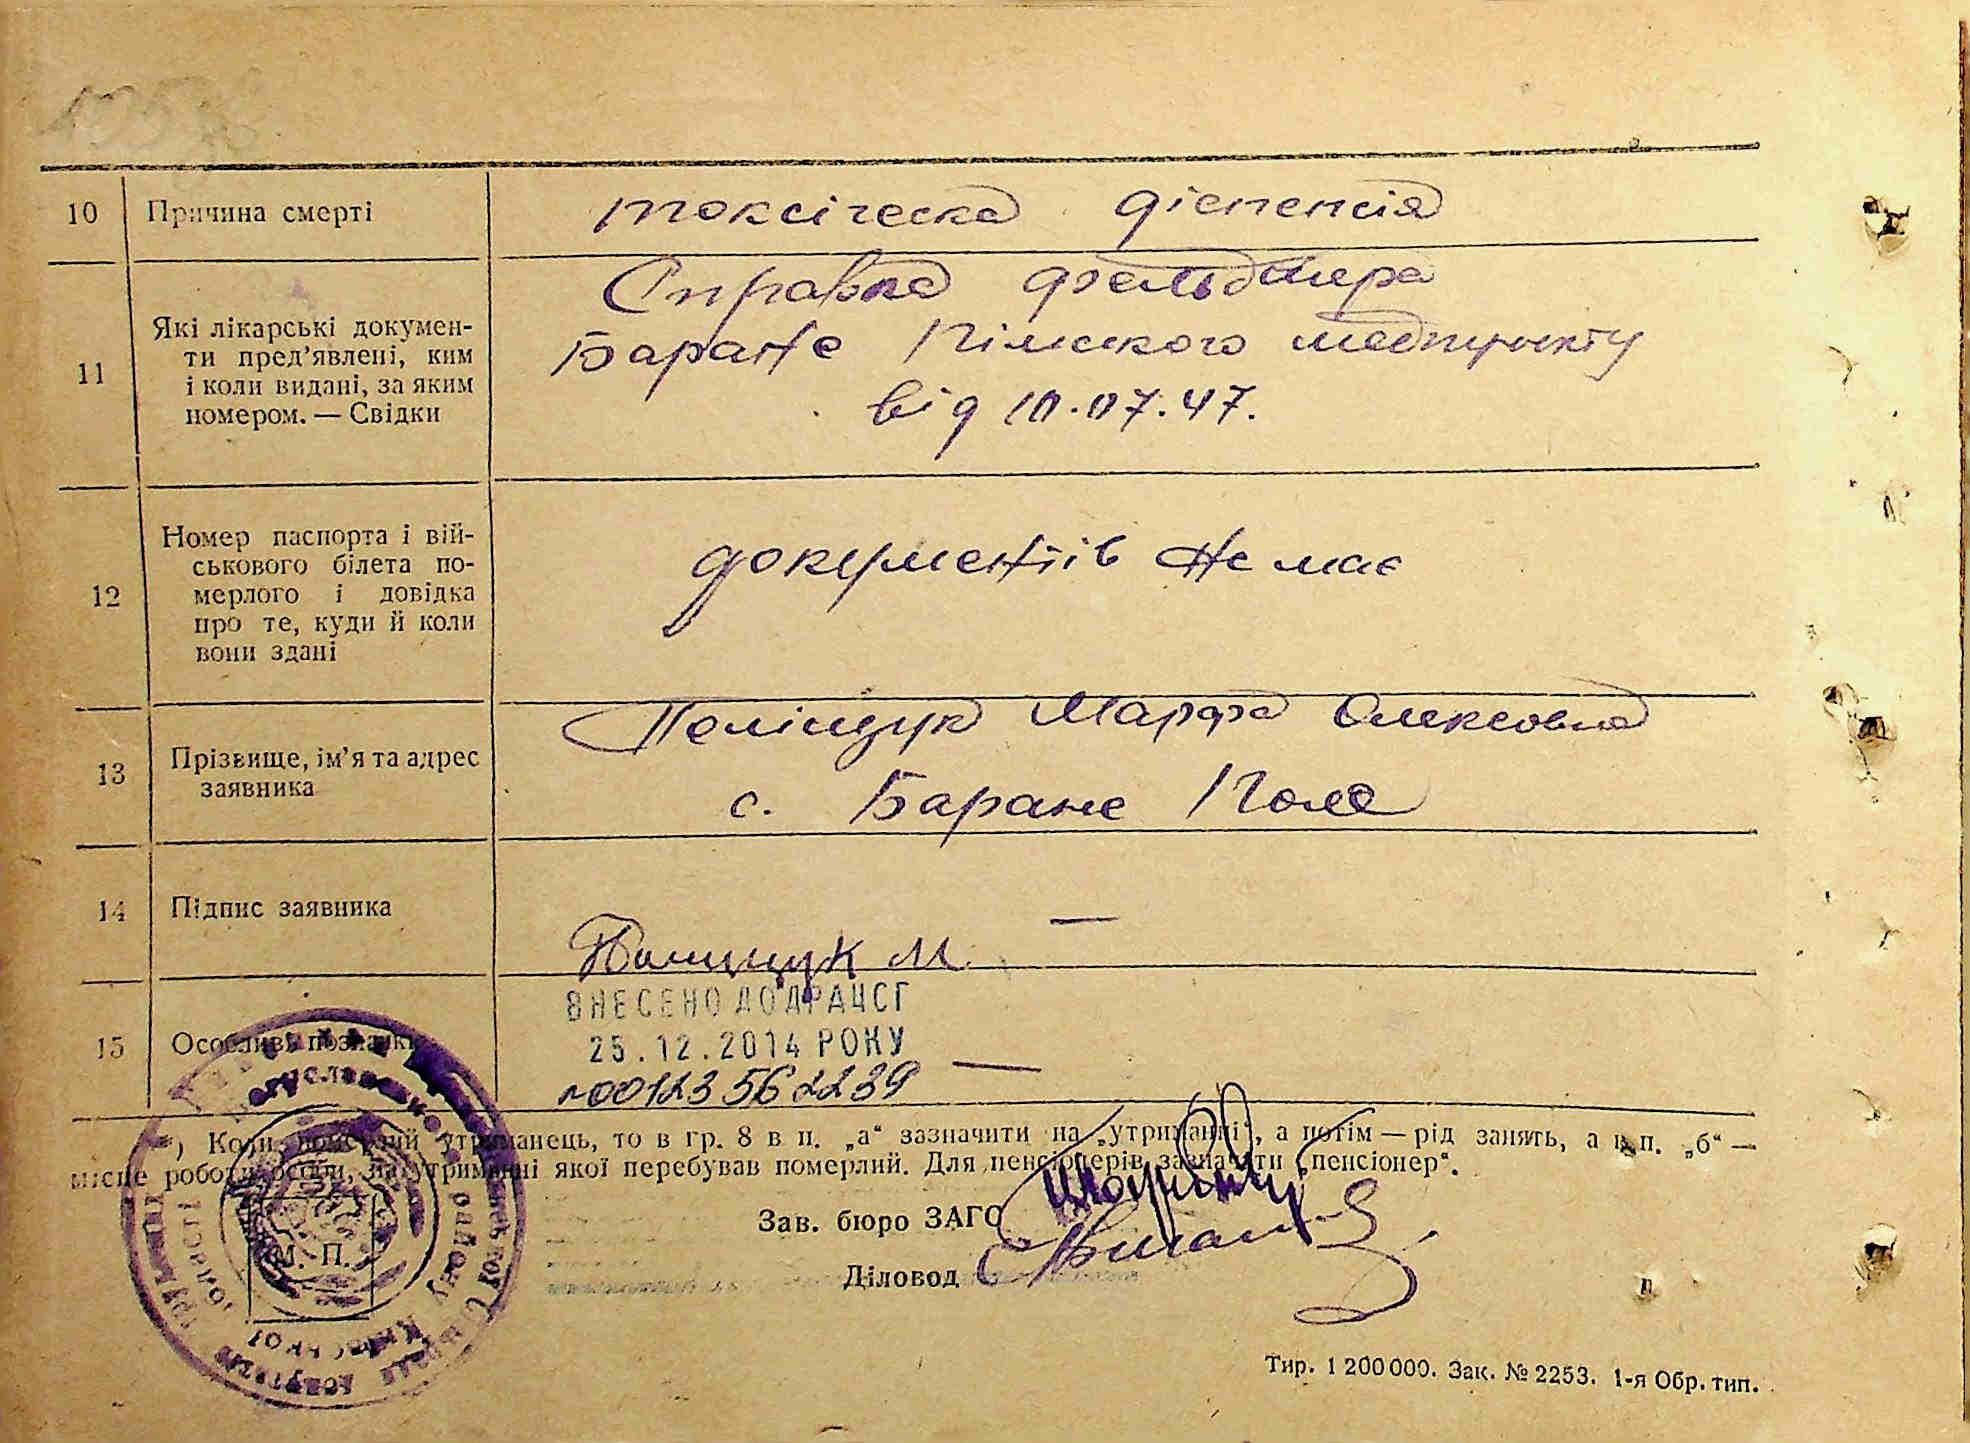 10
Причина смерті
токсіческа діспепсія
11
Які лікарські докумен-
ти пред’явлені, ким
і коли видані, за яким
номером. — Свідки
Справка фельдшера
Баране Пільского медпункту
від 10.07.47.
12
Номер паспорта і вій-
ськового білета по-
мерлого і довідка
про те, куди й коли
вони здані
документів не має
13
Прізвище, ім’я та адрес
заявника
Поліщук Марфа Олексовна
с. Баране Поле
14
Підпис заявника
—
Полищук М
15
Особливі позначки
ВНЕСЕНО ДО ДРАЦСГ
25.12.2014 РОКУ
—
№00123562239
*) Коли померлий утриманець, то в гр. 8 в п. „а“ зазначити на „утриманні“, а потім — рід занять, а в п. „б“ —
місце роботи особи, на утриманні якої перебував померлий. Для пенсіонерів зазначити „пенсіонер“.
Зав. бюро ЗАГС
М. П.
Діловод
Тир. 1 200 000. Зак. № 2253. 1-я Обр. тип.